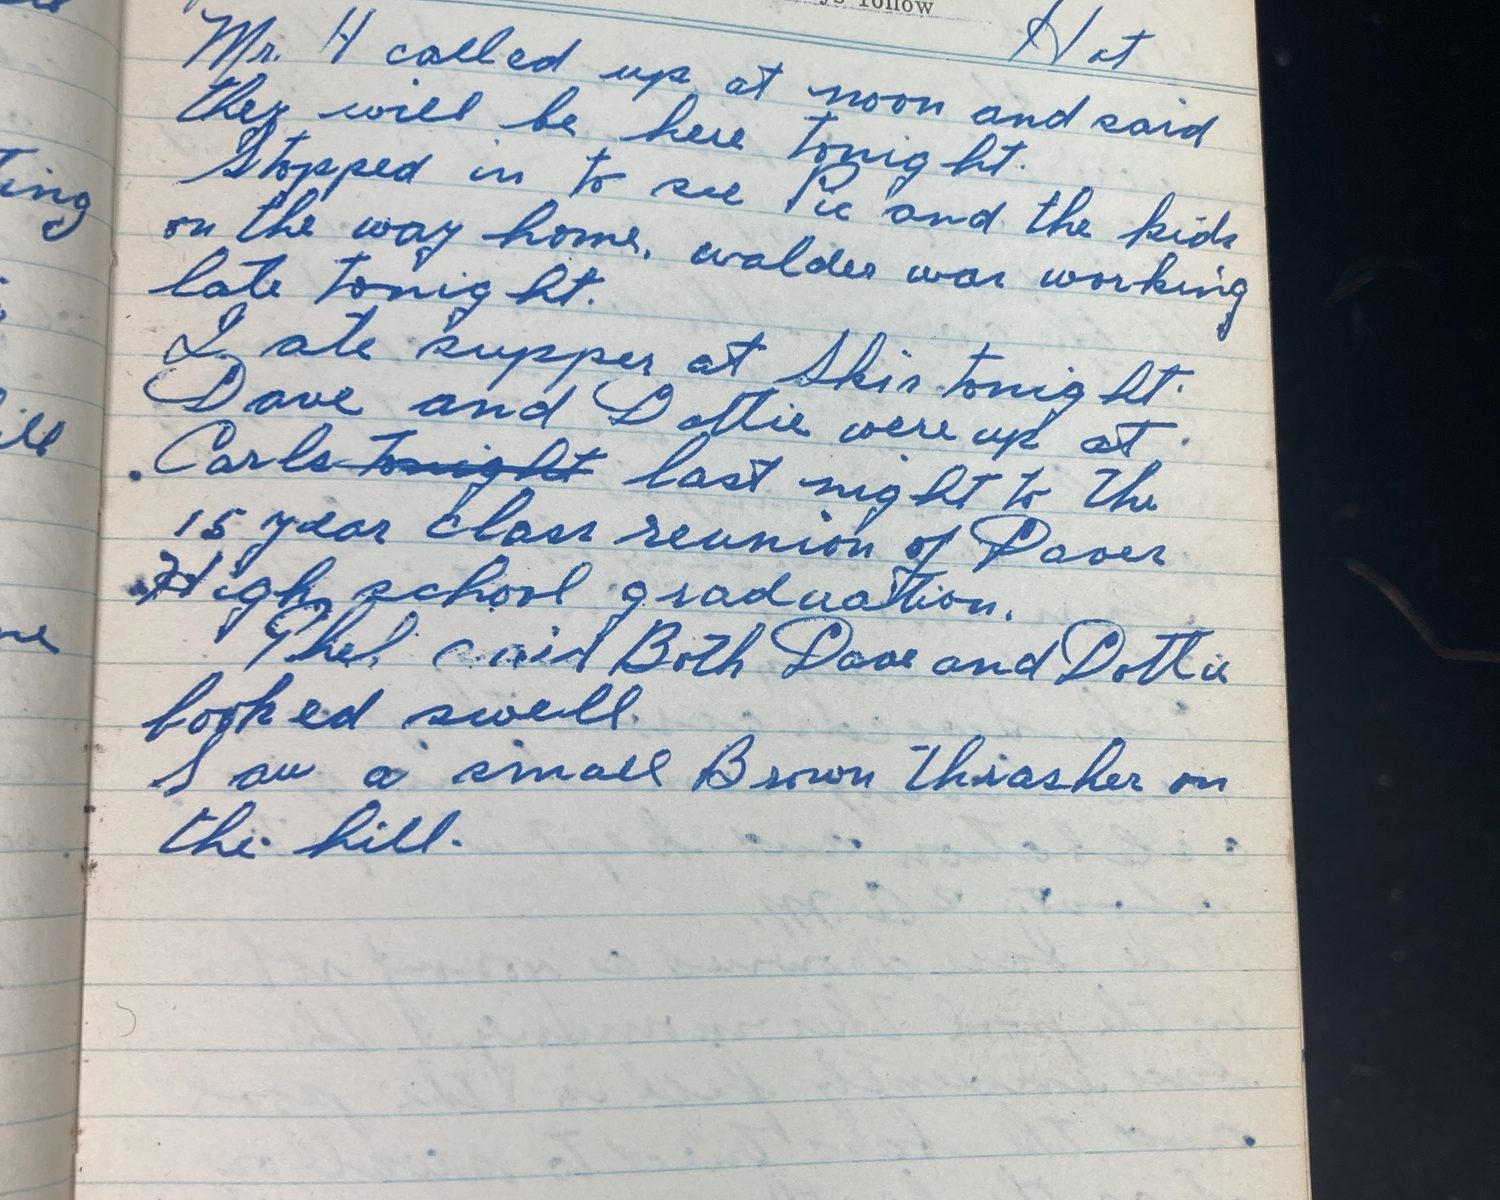 follow
Hot
Mr. H called up at noon and said
they will be here tonight.
Stopped in to see Pic and the kids
on the way home. walder was working
late tonight.
I ate supper at Skis tonight.
Dave and Dottie were up at
Carls tonight last night to the
15 year class reunion of Daves
High school graduation.
Phel. said Both Dave and Dottie
looked swell
Saw a small Brown Thrasher on
the hill.